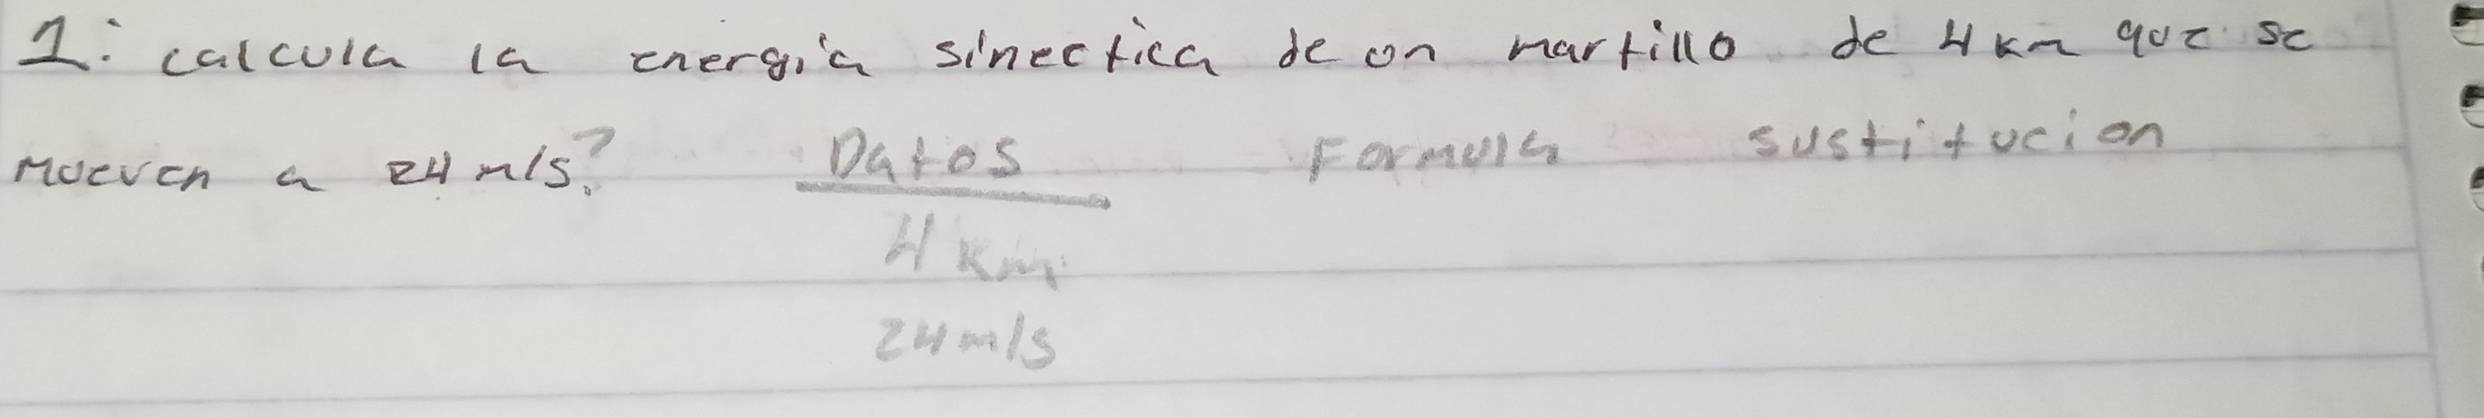 1: calcula la energía sinectica de un martillo de 4 km que se
mueven a 24 m/s?
Datos Formula sustitucion
4 km
24 m/s